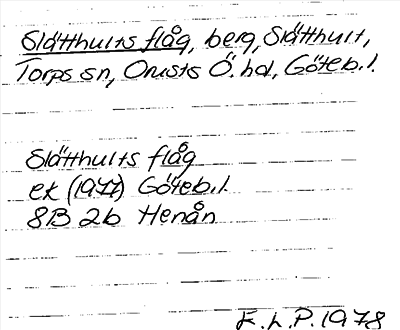 Slätthults flåg, berg, Slätthult,
Torps sn, Orusts Ö. hd, Göteb. l.
Slätthults flåg
ek (1977) Göteb. l.
8B 2b Henån
K. L. P. 1978